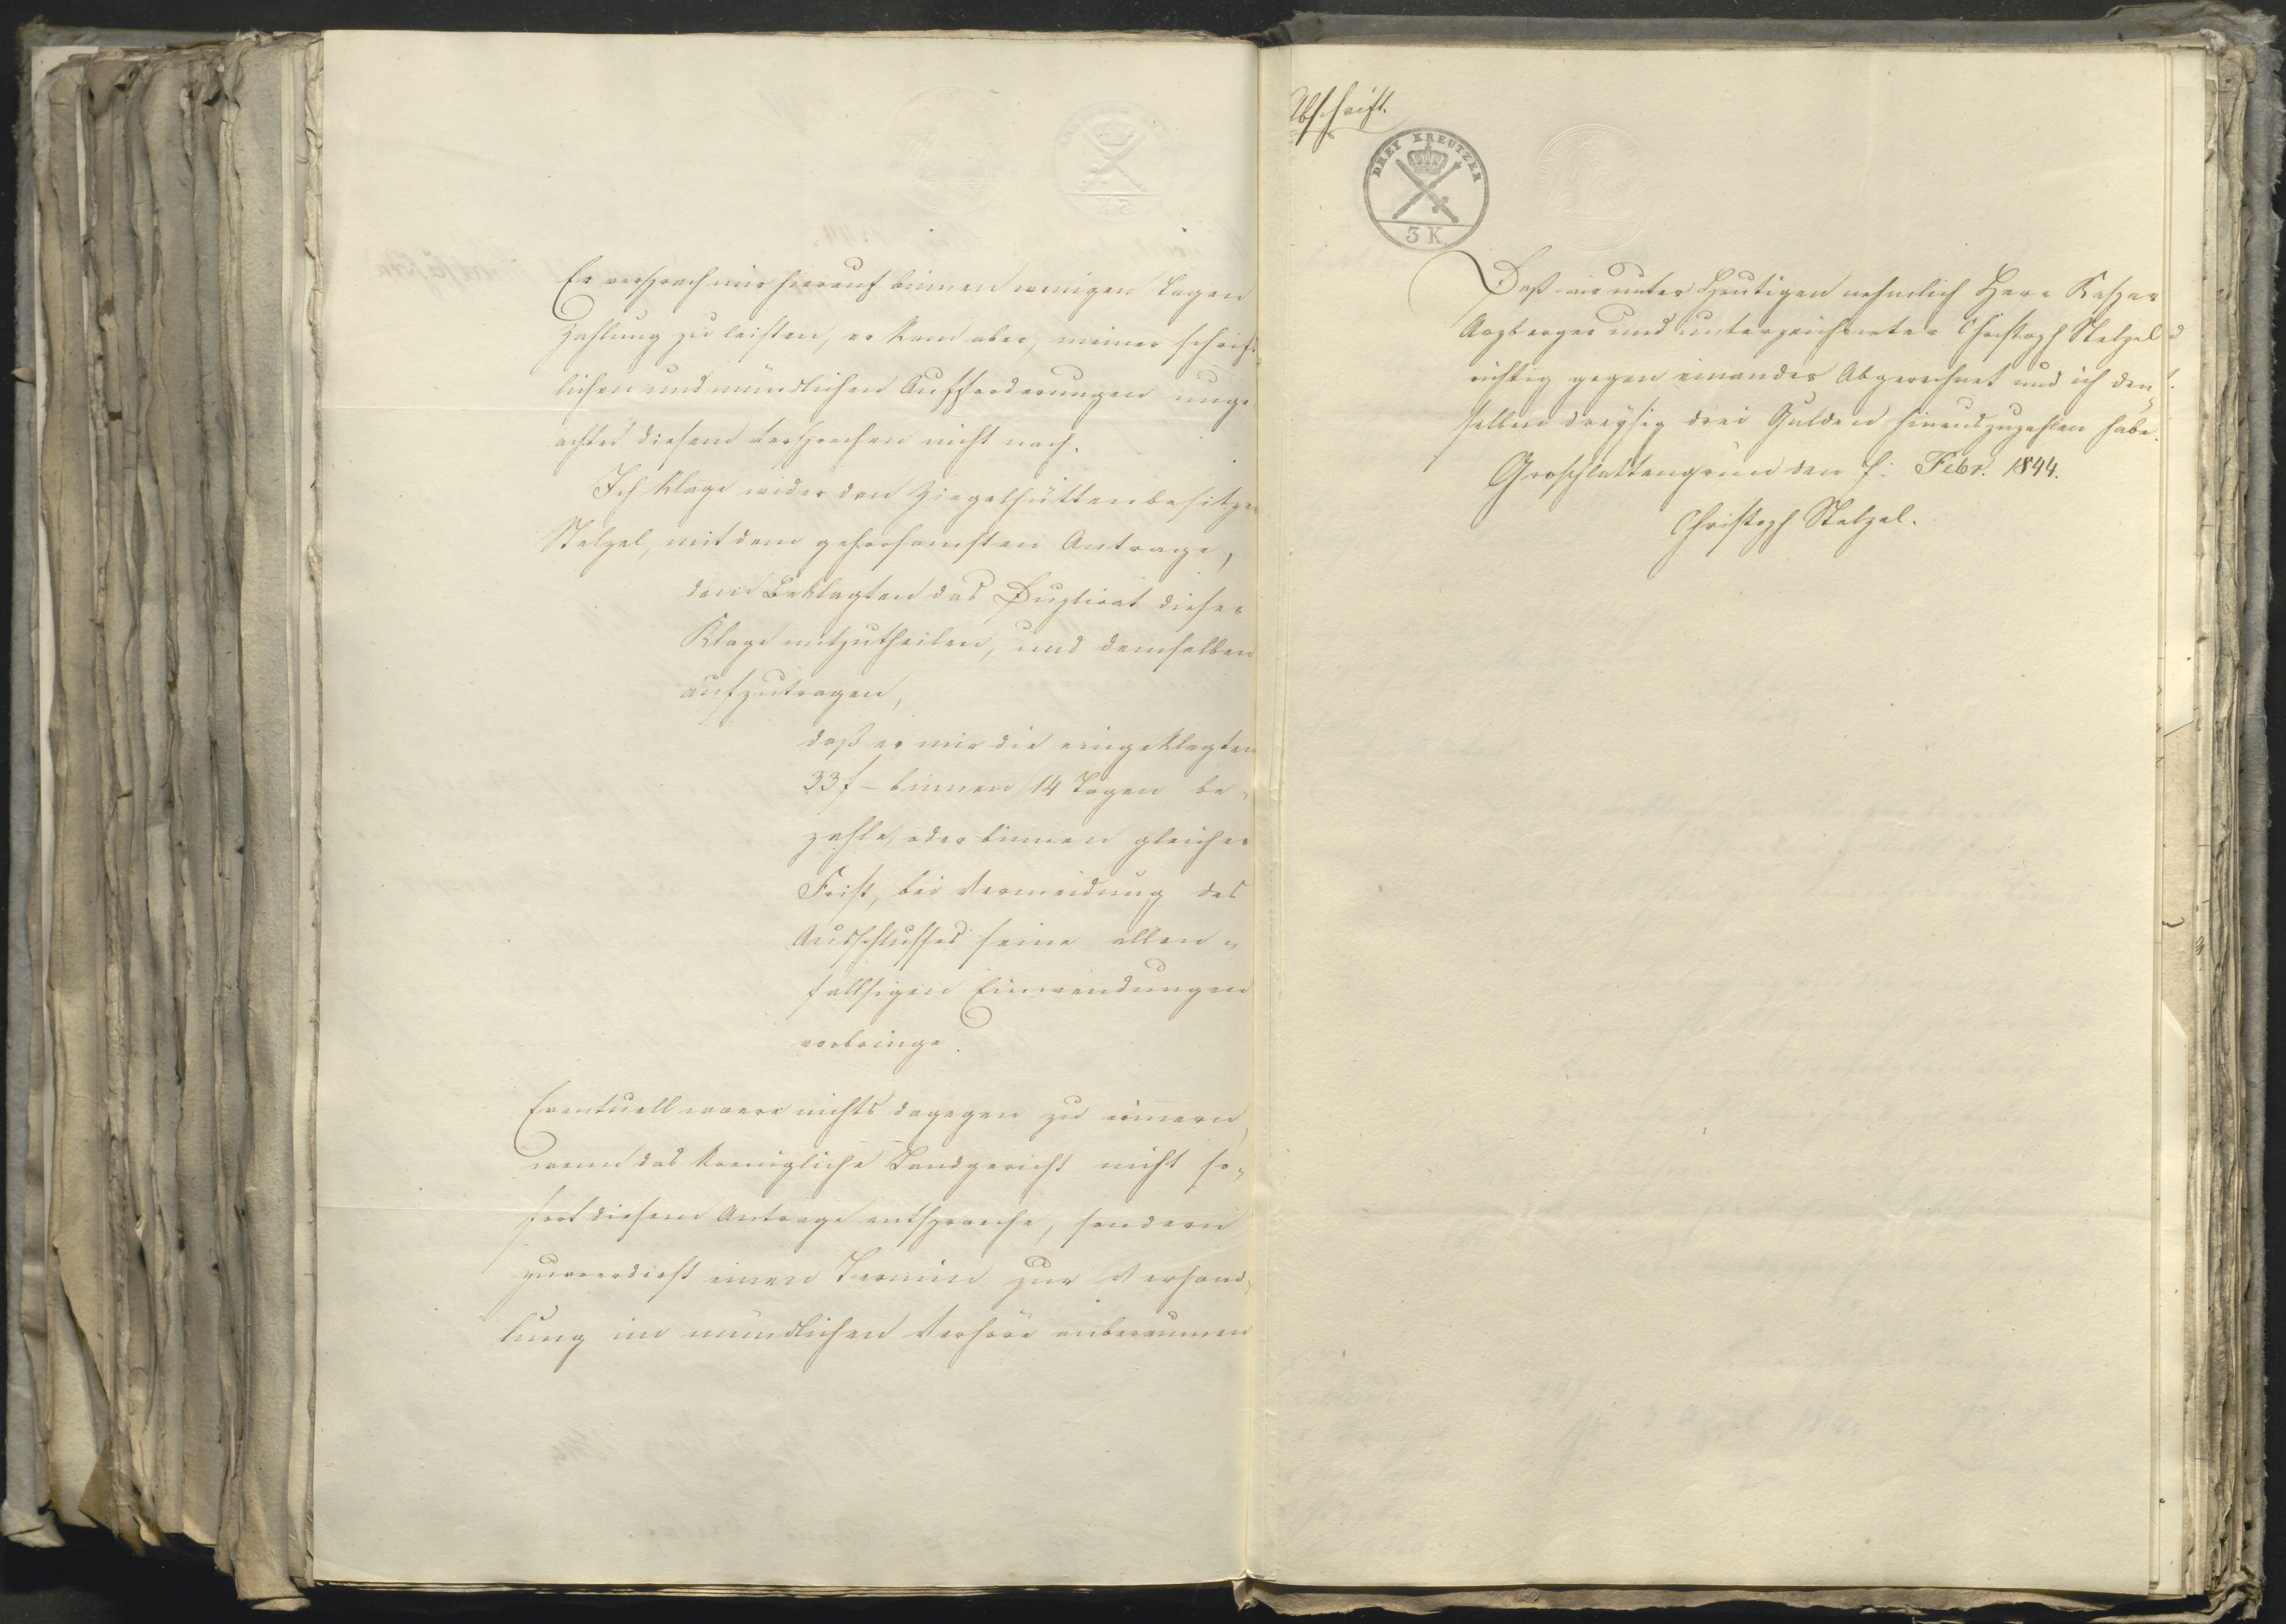 Er versprach mir hierauf binnen wenigen Tagen
Zahlung zu leisten, er kam aber, meiner schrift-
lichen und mündlichen Aufforderungen unge-
achtet diesem Versprechen nicht nach.
Ich klage wider den Ziegelhüttenbesitzer
Stelzel, mit dem gehorsamsten Antrage,
dem Beklagten das Duplicat dieser
Klage mitzutheilen, und demselben
aufzutragen,
daß er mir die eingeklagten
33 f – binnen 14 Tagen be-
zahle, oder binnen gleicher
Frist, bei Vermeidung des
Ausschlusses seine allen-
fallsigen Einwendungen
vorbringe.
Eventuell waere nichts dagegen zu erinnern,
wenn das koenigliche Landgericht nicht so-
fort diesem Antrage entspraeche, sondern
zuvoerderst einen Termin zur Verhand-
lung im mündlichen Verhöre anberaumen
Abschrift.
DREI KREUTZER
3 K
Daß wir unter Heutigen nehmlich Herr Kaspar
Arzberger und unterzeichneter Christoph Stelzel
richtig gegen einander Abgerechnet und ich dem-
selben dreysig drei Gulden hinauszuzahlen habe.
Groschlattengrün den f: Febr. 1844.
Christoph Stelzel.